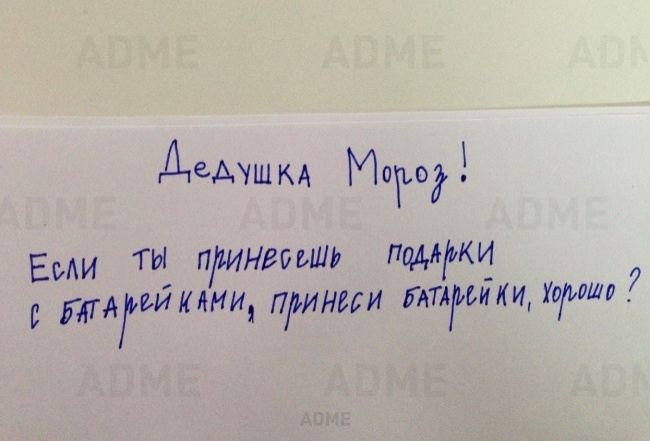 ADME ADME ADM
Дедушка Мороз!
ADME ADME ADME
Если ты принесешь подарки
с батарейками, принеси батарейки, хорошо?
ADME ADME ADM
ADME